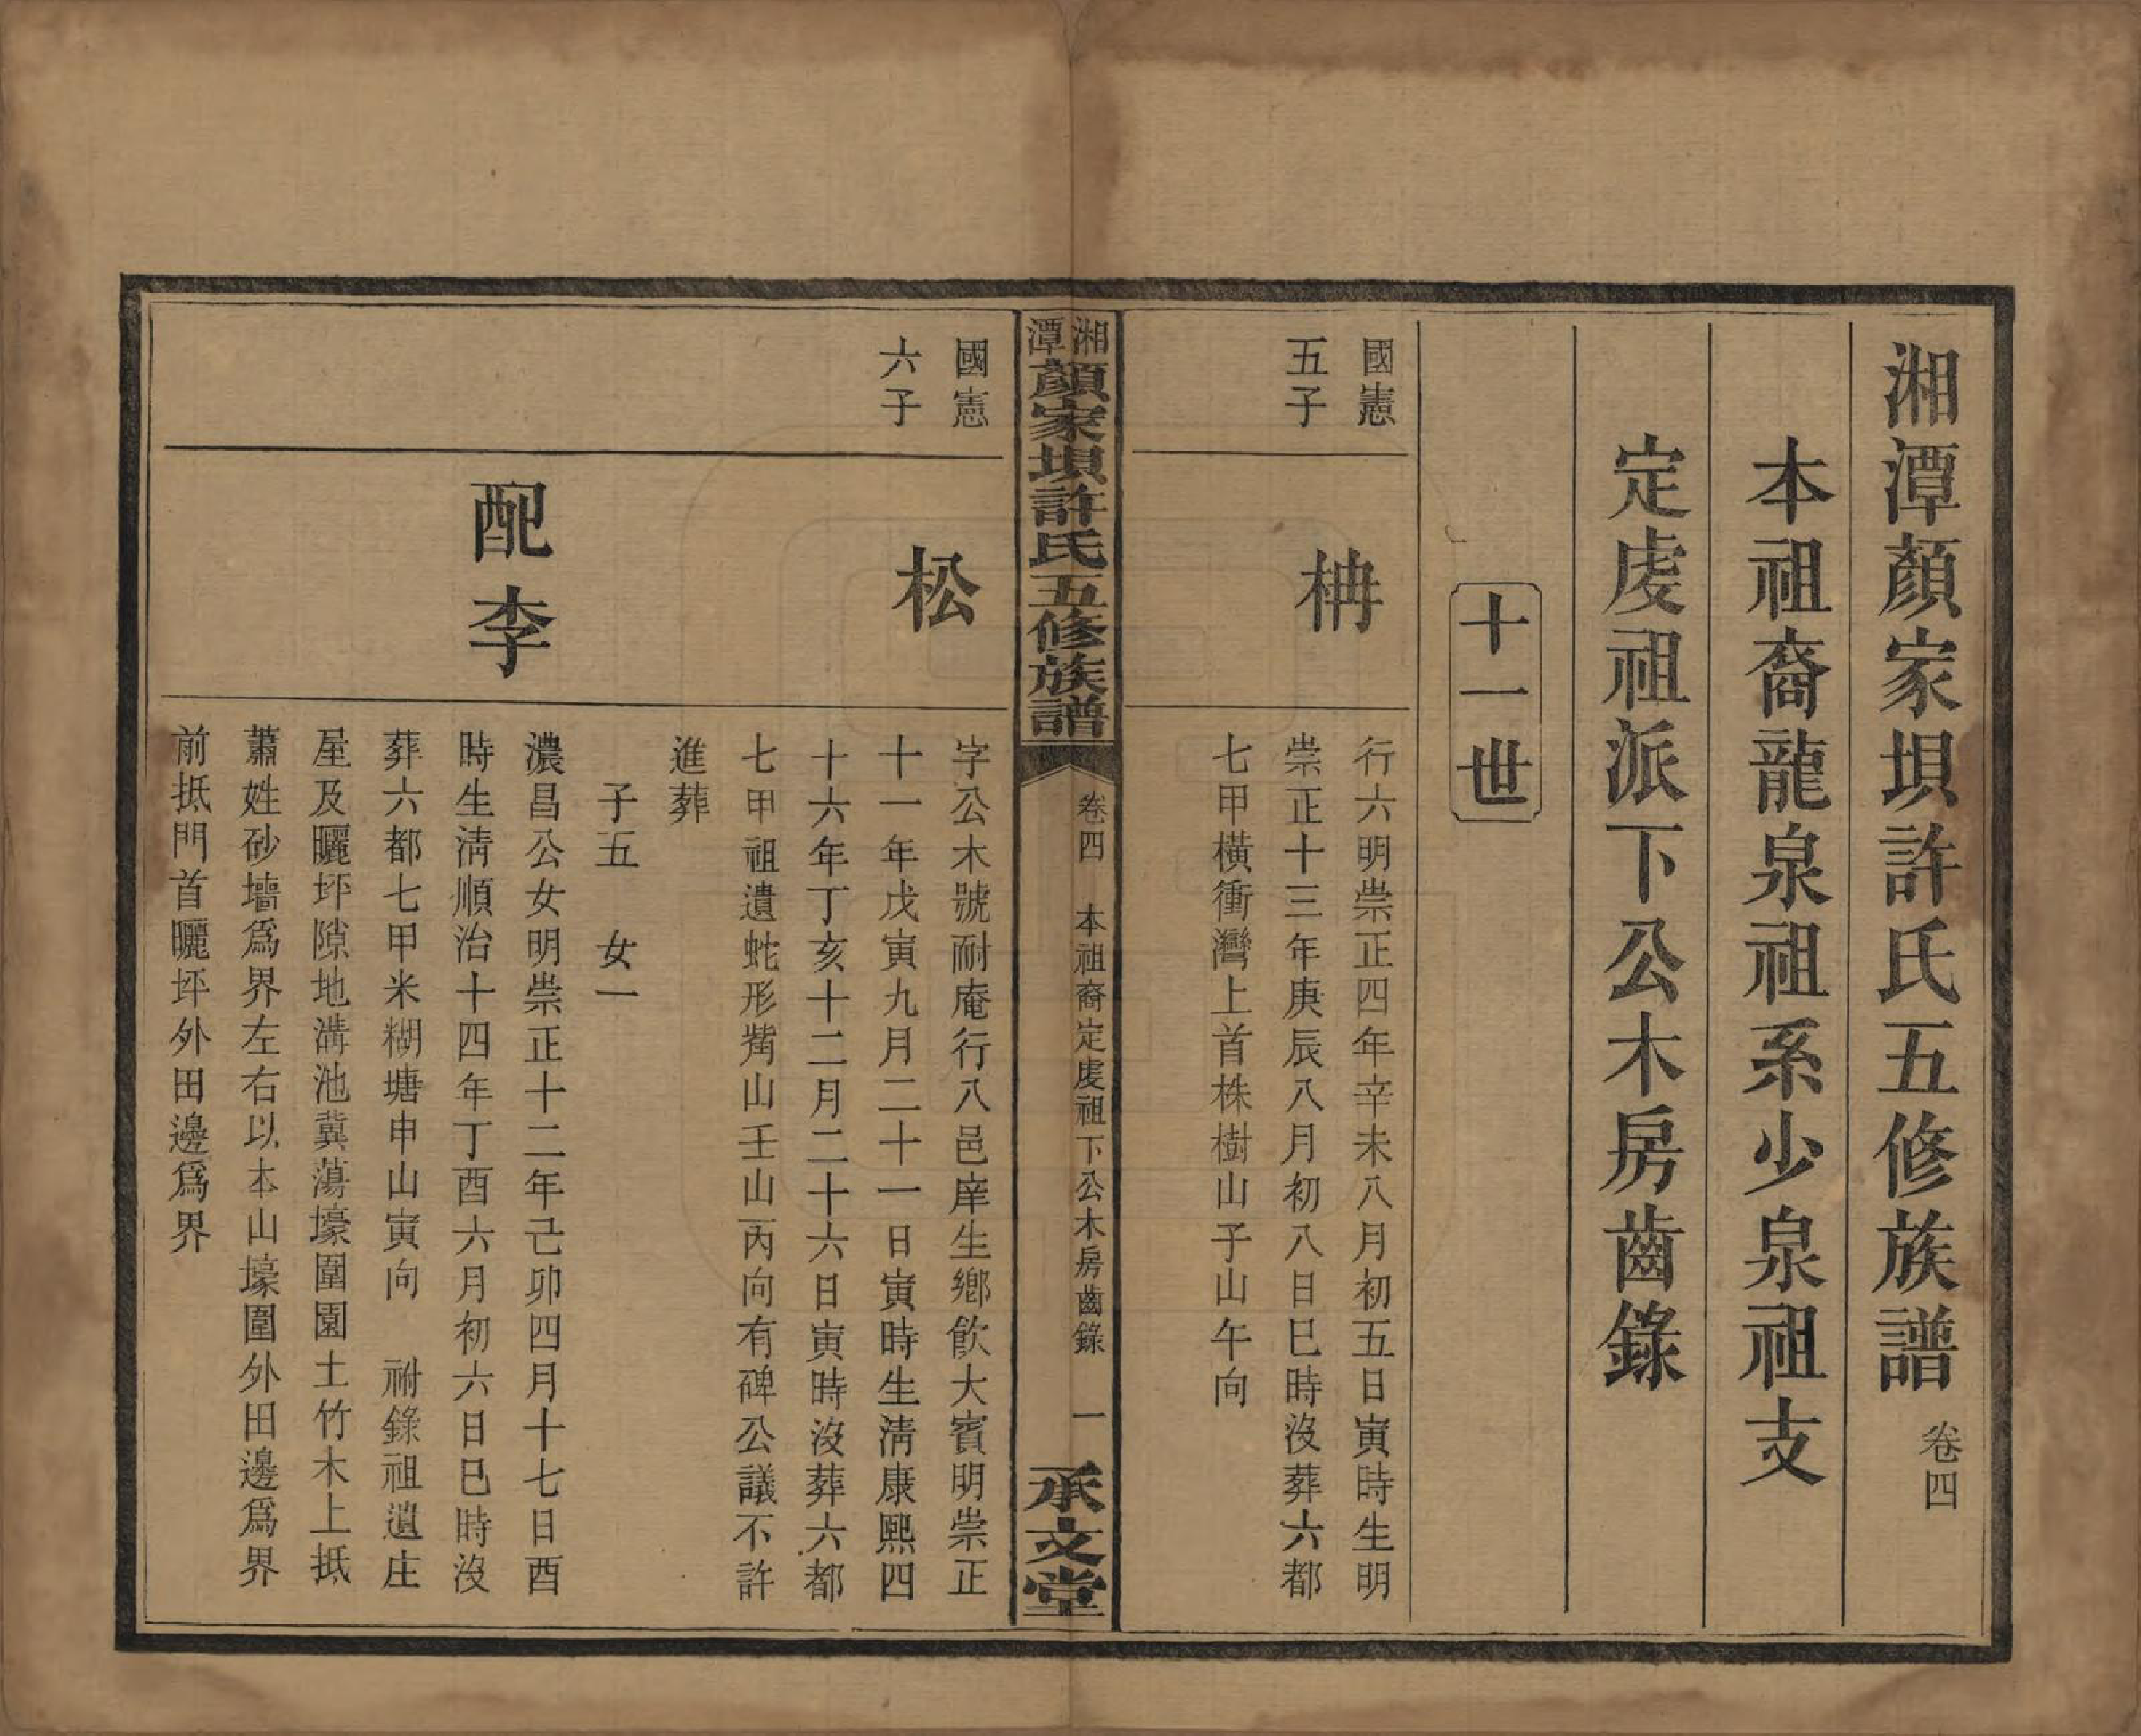 湘潭顏家垻許氏五修族譜 卷四
本祖裔龍泉祖系少泉祖支
定虔祖派下公木房齒錄
十一世
國憲
五子
柟
行六明崇正四年辛未八月初五日寅時生明
崇正十三年庚辰八月初八日巳時沒葬六都
七甲橫衝灣上首株樹山子山午向
湘潭顏家垻許氏五修族譜 卷四 本祖裔定虔祖下公木房齒錄 一 承文堂
國憲
六子
松
字公木號耐庵行八邑庠生鄉飲大賓明崇正
十一年戊寅九月二十一日寅時生淸康熙四
十六年丁亥十二月二十六日寅時沒葬六都
七甲祖遺蛇形觜山壬山丙向有碑公議不許
進葬
子五 女一
配李
濃昌公女明崇正十二年己卯四月十七日酉
時生淸順治十四年丁酉六月初六日巳時沒
葬六都七甲米糊塘申山寅向 祔錄祖遺庄
屋及曬坪隙地溝池糞蕩壕圍園土竹木上抵
蕭姓砂墻爲界左右以本山壕圍外田邊爲界
前抵門首曬坪外田邊爲界